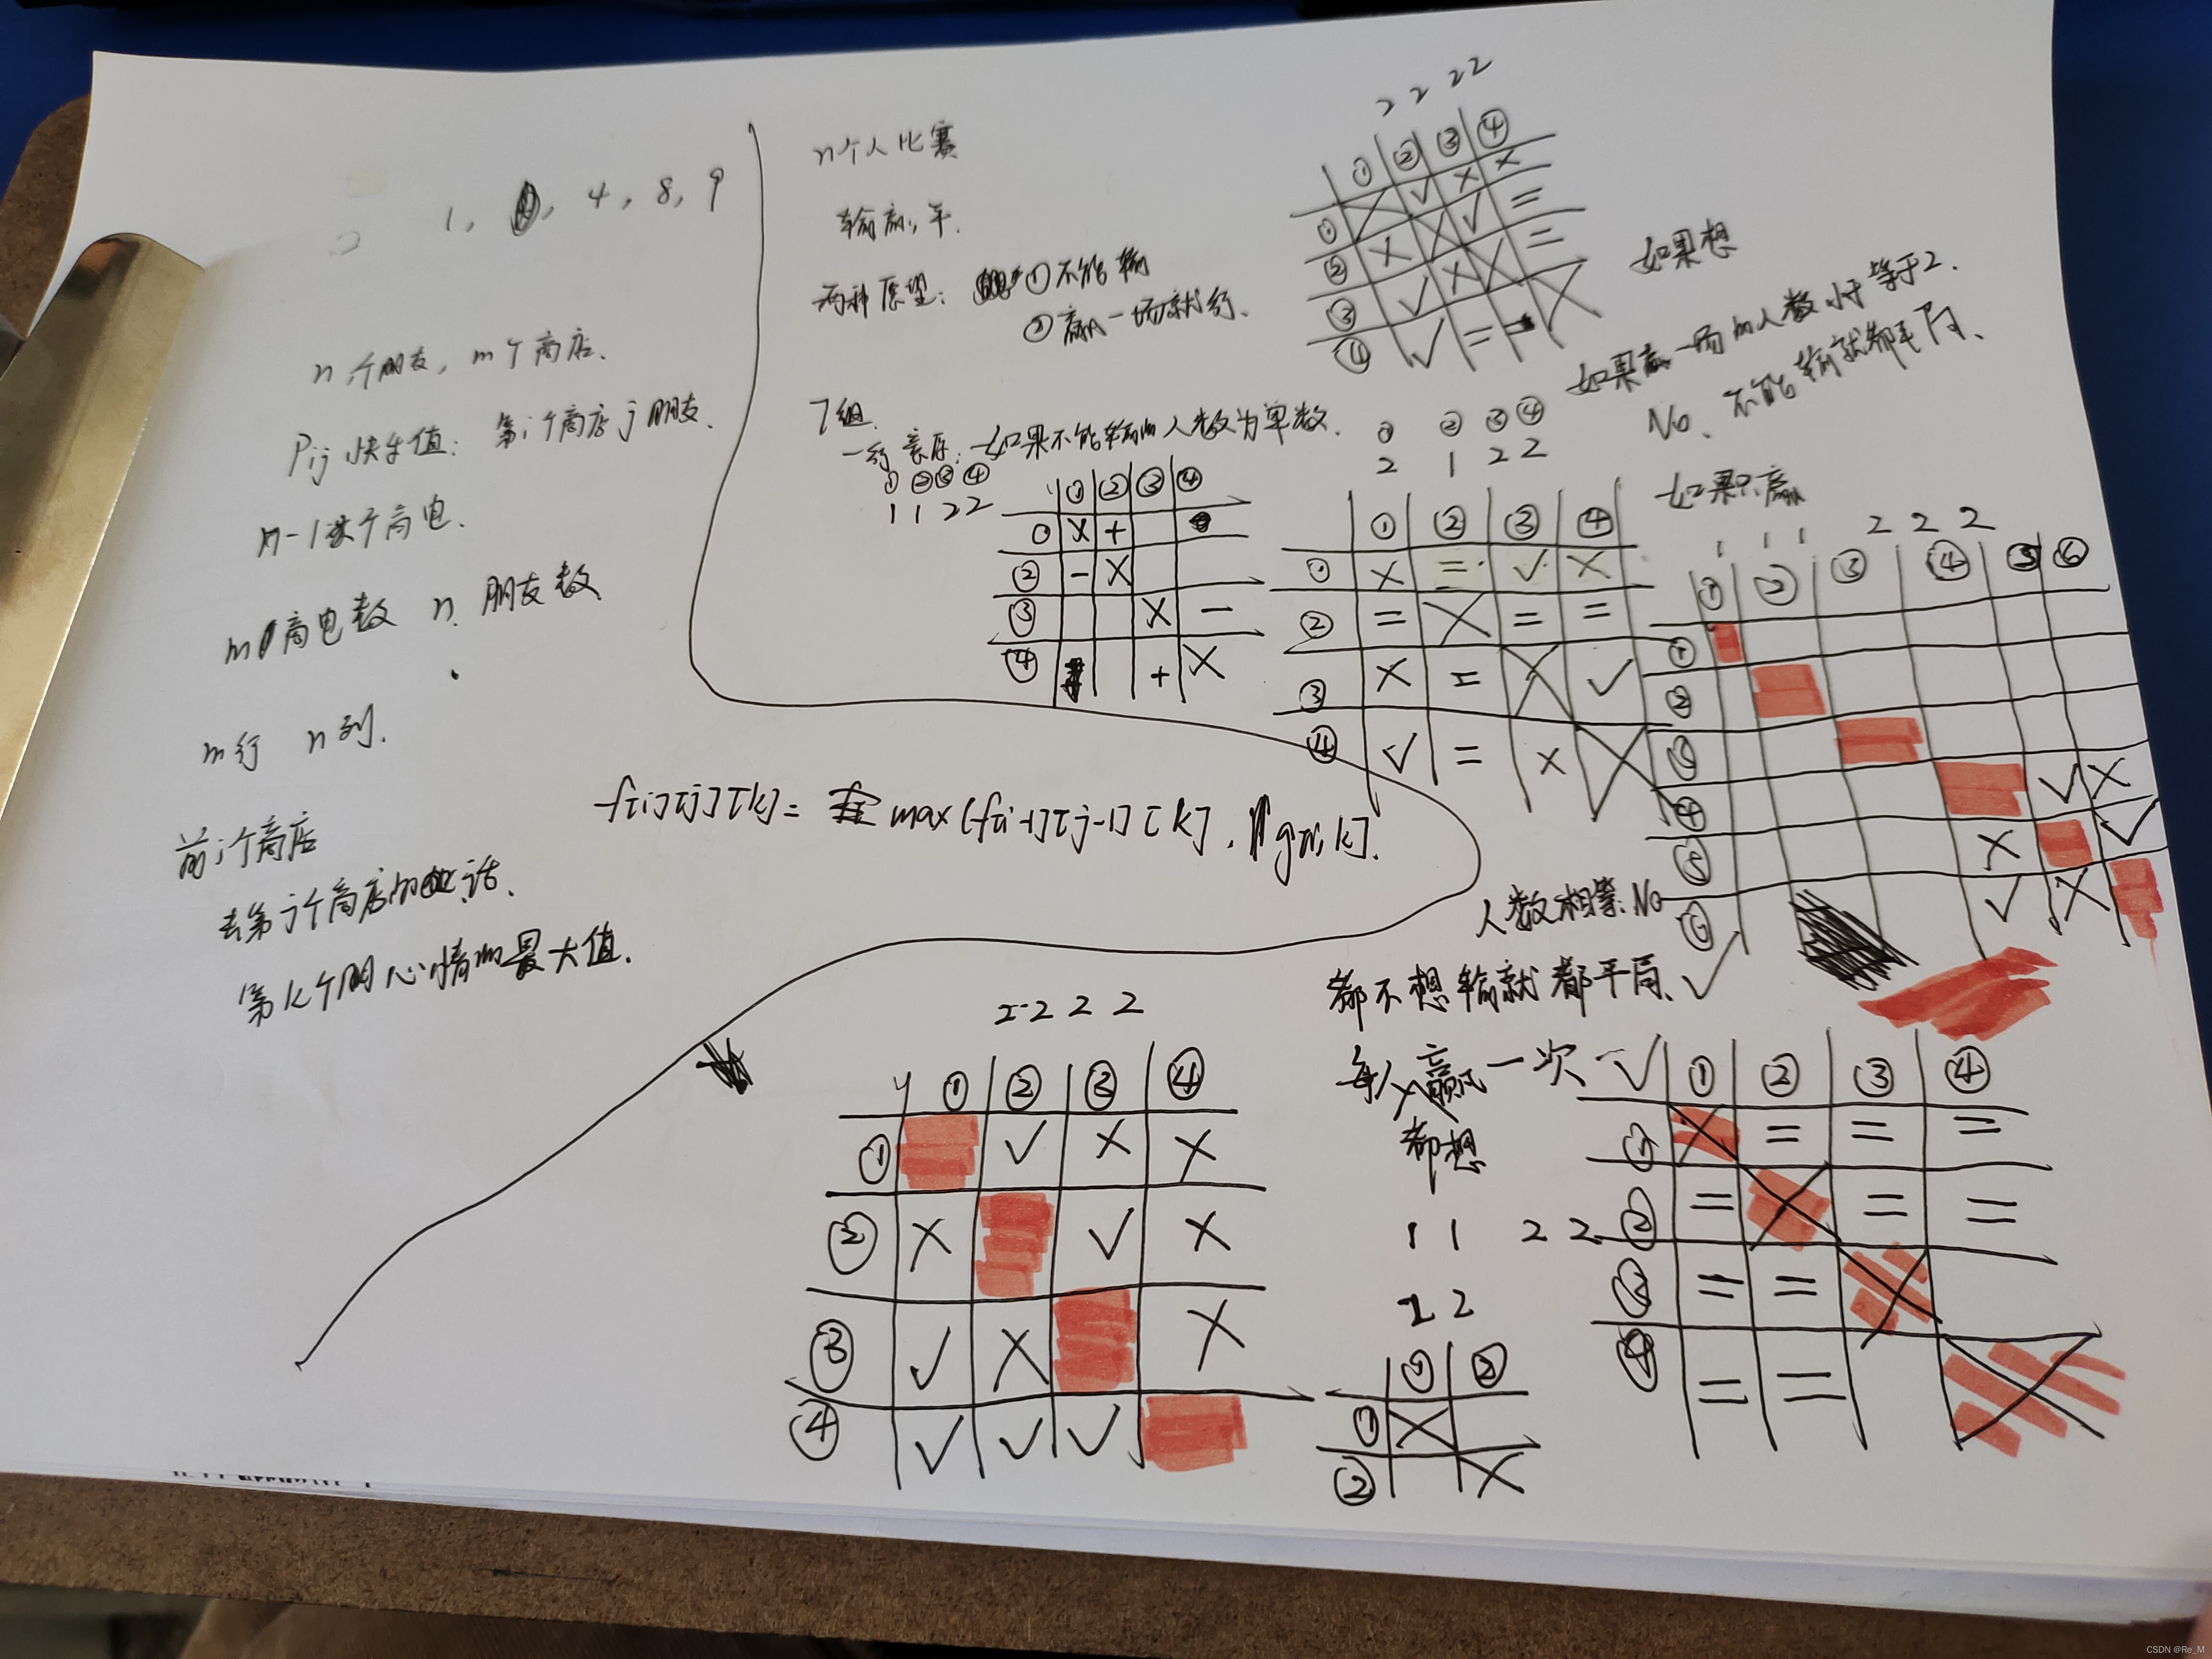 1, 4, 8, 9
n个朋友, m个商店.
Pij 快乐值: 第i个商店j朋友.
m 商电数 n. 朋友数
m行 n列.
前i个商店
去第j个商店的话.
第k个朋心情的最大值.
f[i][j][k]= max(f[i-1][j-1][k],
n个人比赛
输赢,平.
两种愿望: ①不能输
②赢一场就行.
7组.
如果不能输的人数为单数.
① ② ③ ④
1 1 2 2
① ② ③ ④
X +
② - X
③ X -
④ + X
2 2 2 2
① ② ③ ④
① ✓ X X
② X ✓ =
③ ✓ X =
④ ✓ = =
如果想
如果赢一场的人数小于等于2.
No. 不能输就都平局.
① ② ③ ④
2 1 2 2
① ② ③ ④
① X = ✓ X
② = X = =
③ X = X ✓
④ ✓ = X X
如果只赢
1 1 1 2 2 2
① ② ③ ④ ⑤ ⑥
①
②
③
④ ✓ X
⑤ X ✓
⑥ ✓ X
人数相等. No
都不想输就都平局. ✓
每人赢一次 ✓
都想
1 1 2 2
① ② ③ ④
① X = = =
② = X = =
③ = = X
④ = = X
2 2 2
① ② ③ ④
① ✓ X X
② X ✓ X
③ ✓ X X
④ ✓ ✓ ✓
2 2
① ②
① X
② X
CSDN @Re_M